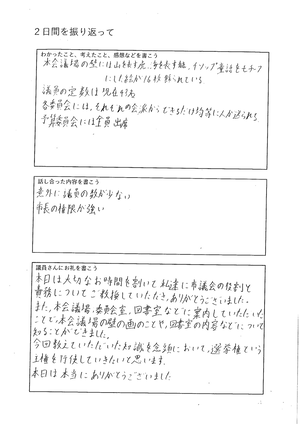 2日間を振り返って
わかったこと、考えたこと、感想などを書こう
本会議場の壁には山を表す虎、海を表す龍、イソップ童話をモチーフ
にした絵が16枚飾られている
議員の定数は現在
各委員会には、それぞれの会派からできるだけ均等に人が送られる
予算委員会には全員出席
話し合った内容を書こう
意外に議員の数が少ない
市長の権限が強い
議員さんにお礼を書こう
本日は大切なお時間を割いて私達に市議会の役割と
責務についてご教授していただき、ありがとうございました。
また、本会議場、委員会室、図書室などに案内していただいた
ことで、本会議場の壁の画のことや、図書室の内容などについて
知ることができました。
今回教えていただいた知識を念頭において、選挙権という
主権を行使していきたいと思います。
本日は本当にありがとうございました